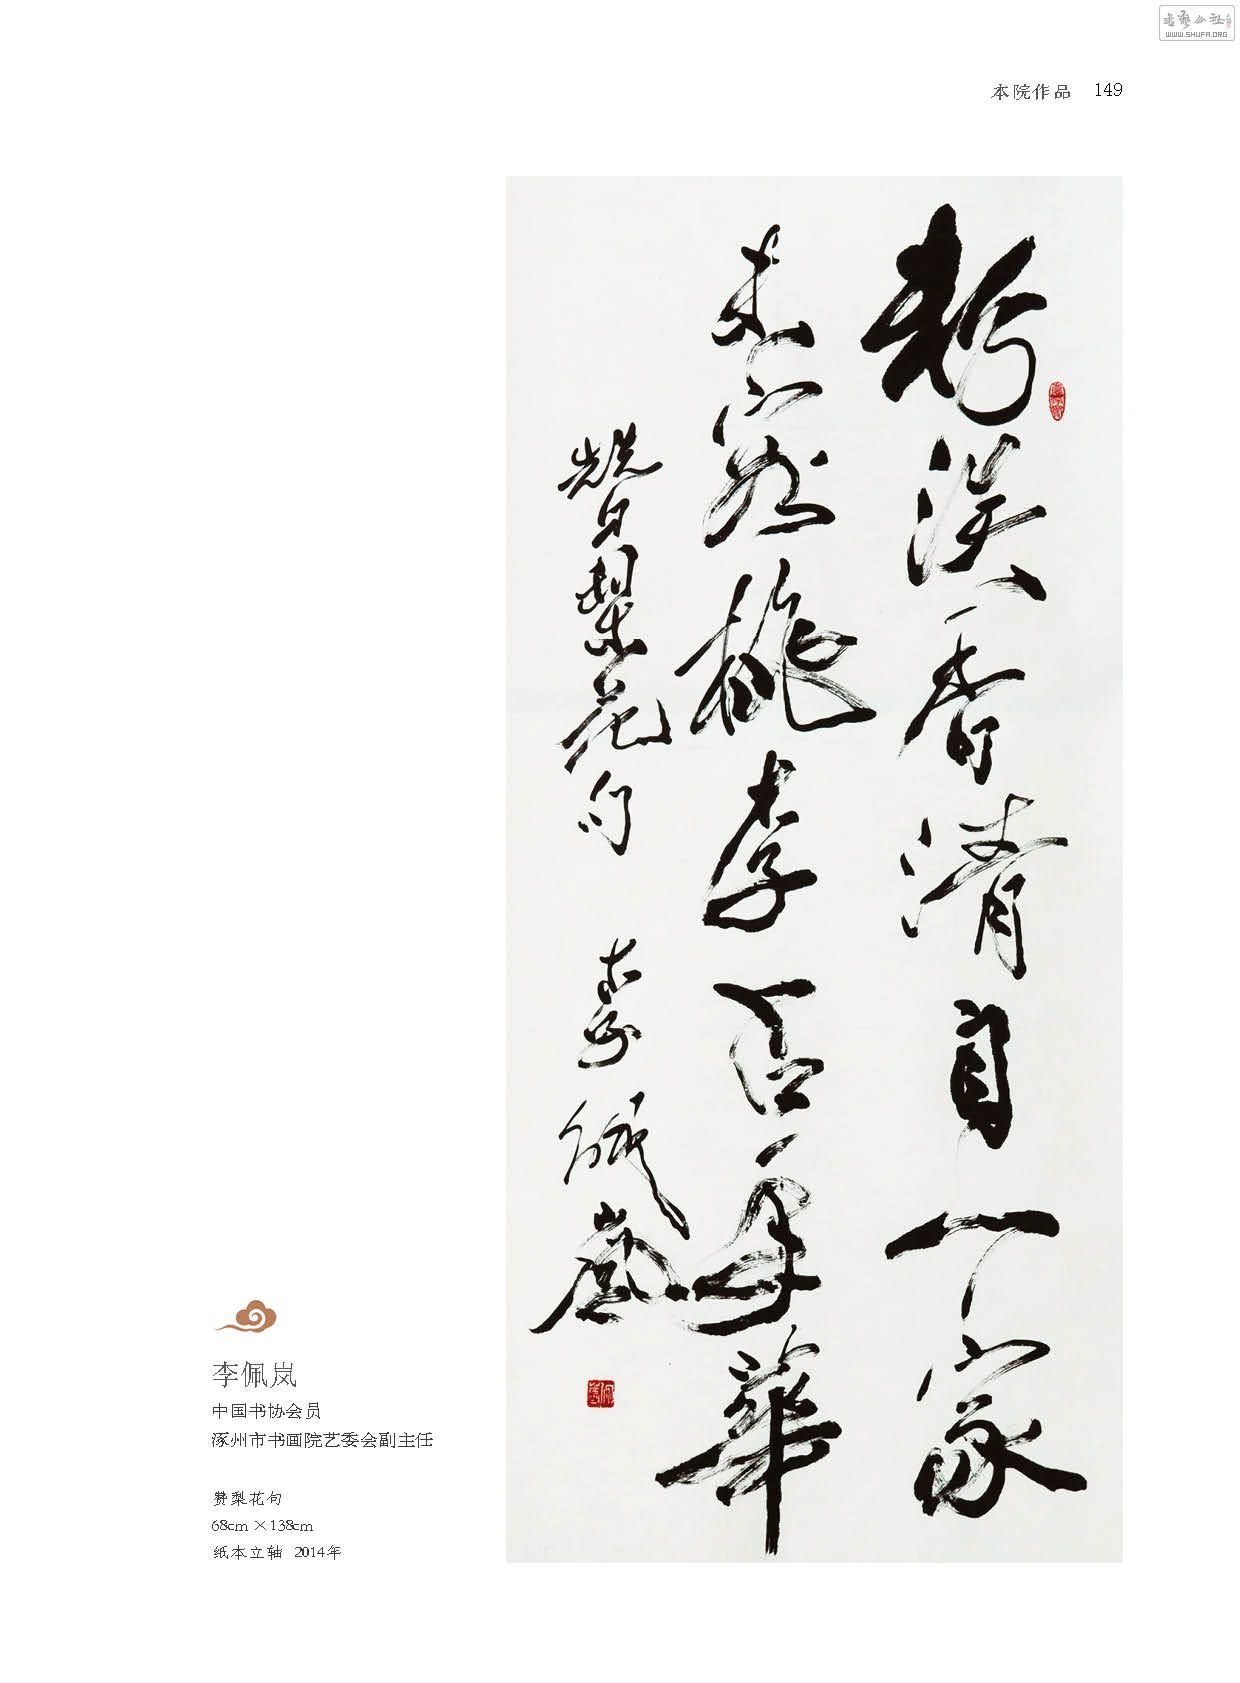 書藝公社
WWW.SHUFA.ORG
本院作品 149
粉淡香清自一家
未容桃李占年華
贊梨花句 李佩嵐
李佩岚
中国书协会员
涿州市书画院艺委会副主任
赞梨花句
68cm×138cm
纸本立轴 2014年